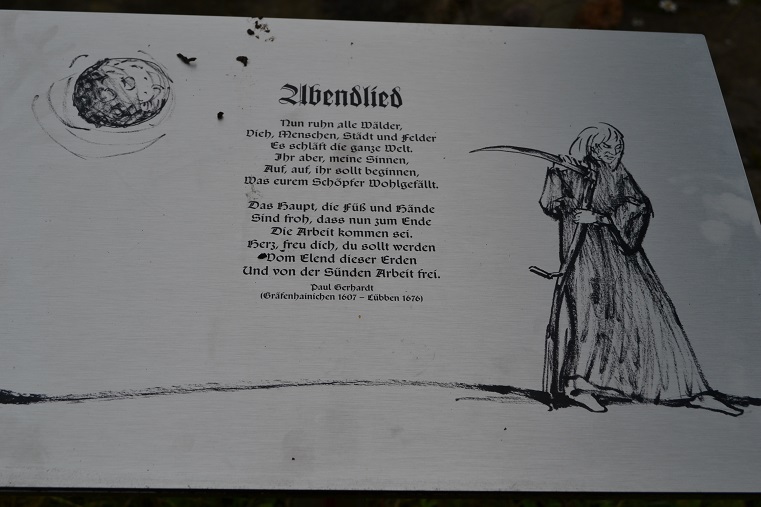 Abendlied
Nun ruhn alle Wälder,
Vieh, Menschen, Städt und Felder
Es schläft die ganze Welt.
Ihr aber, meine Sinnen,
Auf, auf, ihr sollt beginnen,
Was eurem Schöpfer Wohlgefällt.
Das Haupt, die Füß und Hände
Sind froh, dass nun zum Ende
Die Arbeit kommen sei.
Herz, freu dich, du sollt werden
Vom Elend dieser Erden
Und von der Sünden Arbeit frei.
Paul Gerhardt
(Gräfenhainichen 1607 – Lübben 1676)